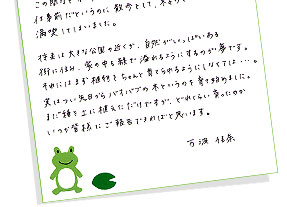 仕事前だというのに散歩をして、
満喫してしまいました。
将来は大きな公園の近くか、自然がいっぱいある
街に住み、家の中も緑で溢れるようにするのが夢です。
それにはまず植物をちゃんと育てられるようにしなくては…。
実はつい先日からバオバブの木というのを育て始めました。
まだ種を土に植えただけですが、どれくらい育ったか
いつか皆様にご報告できればと思います。